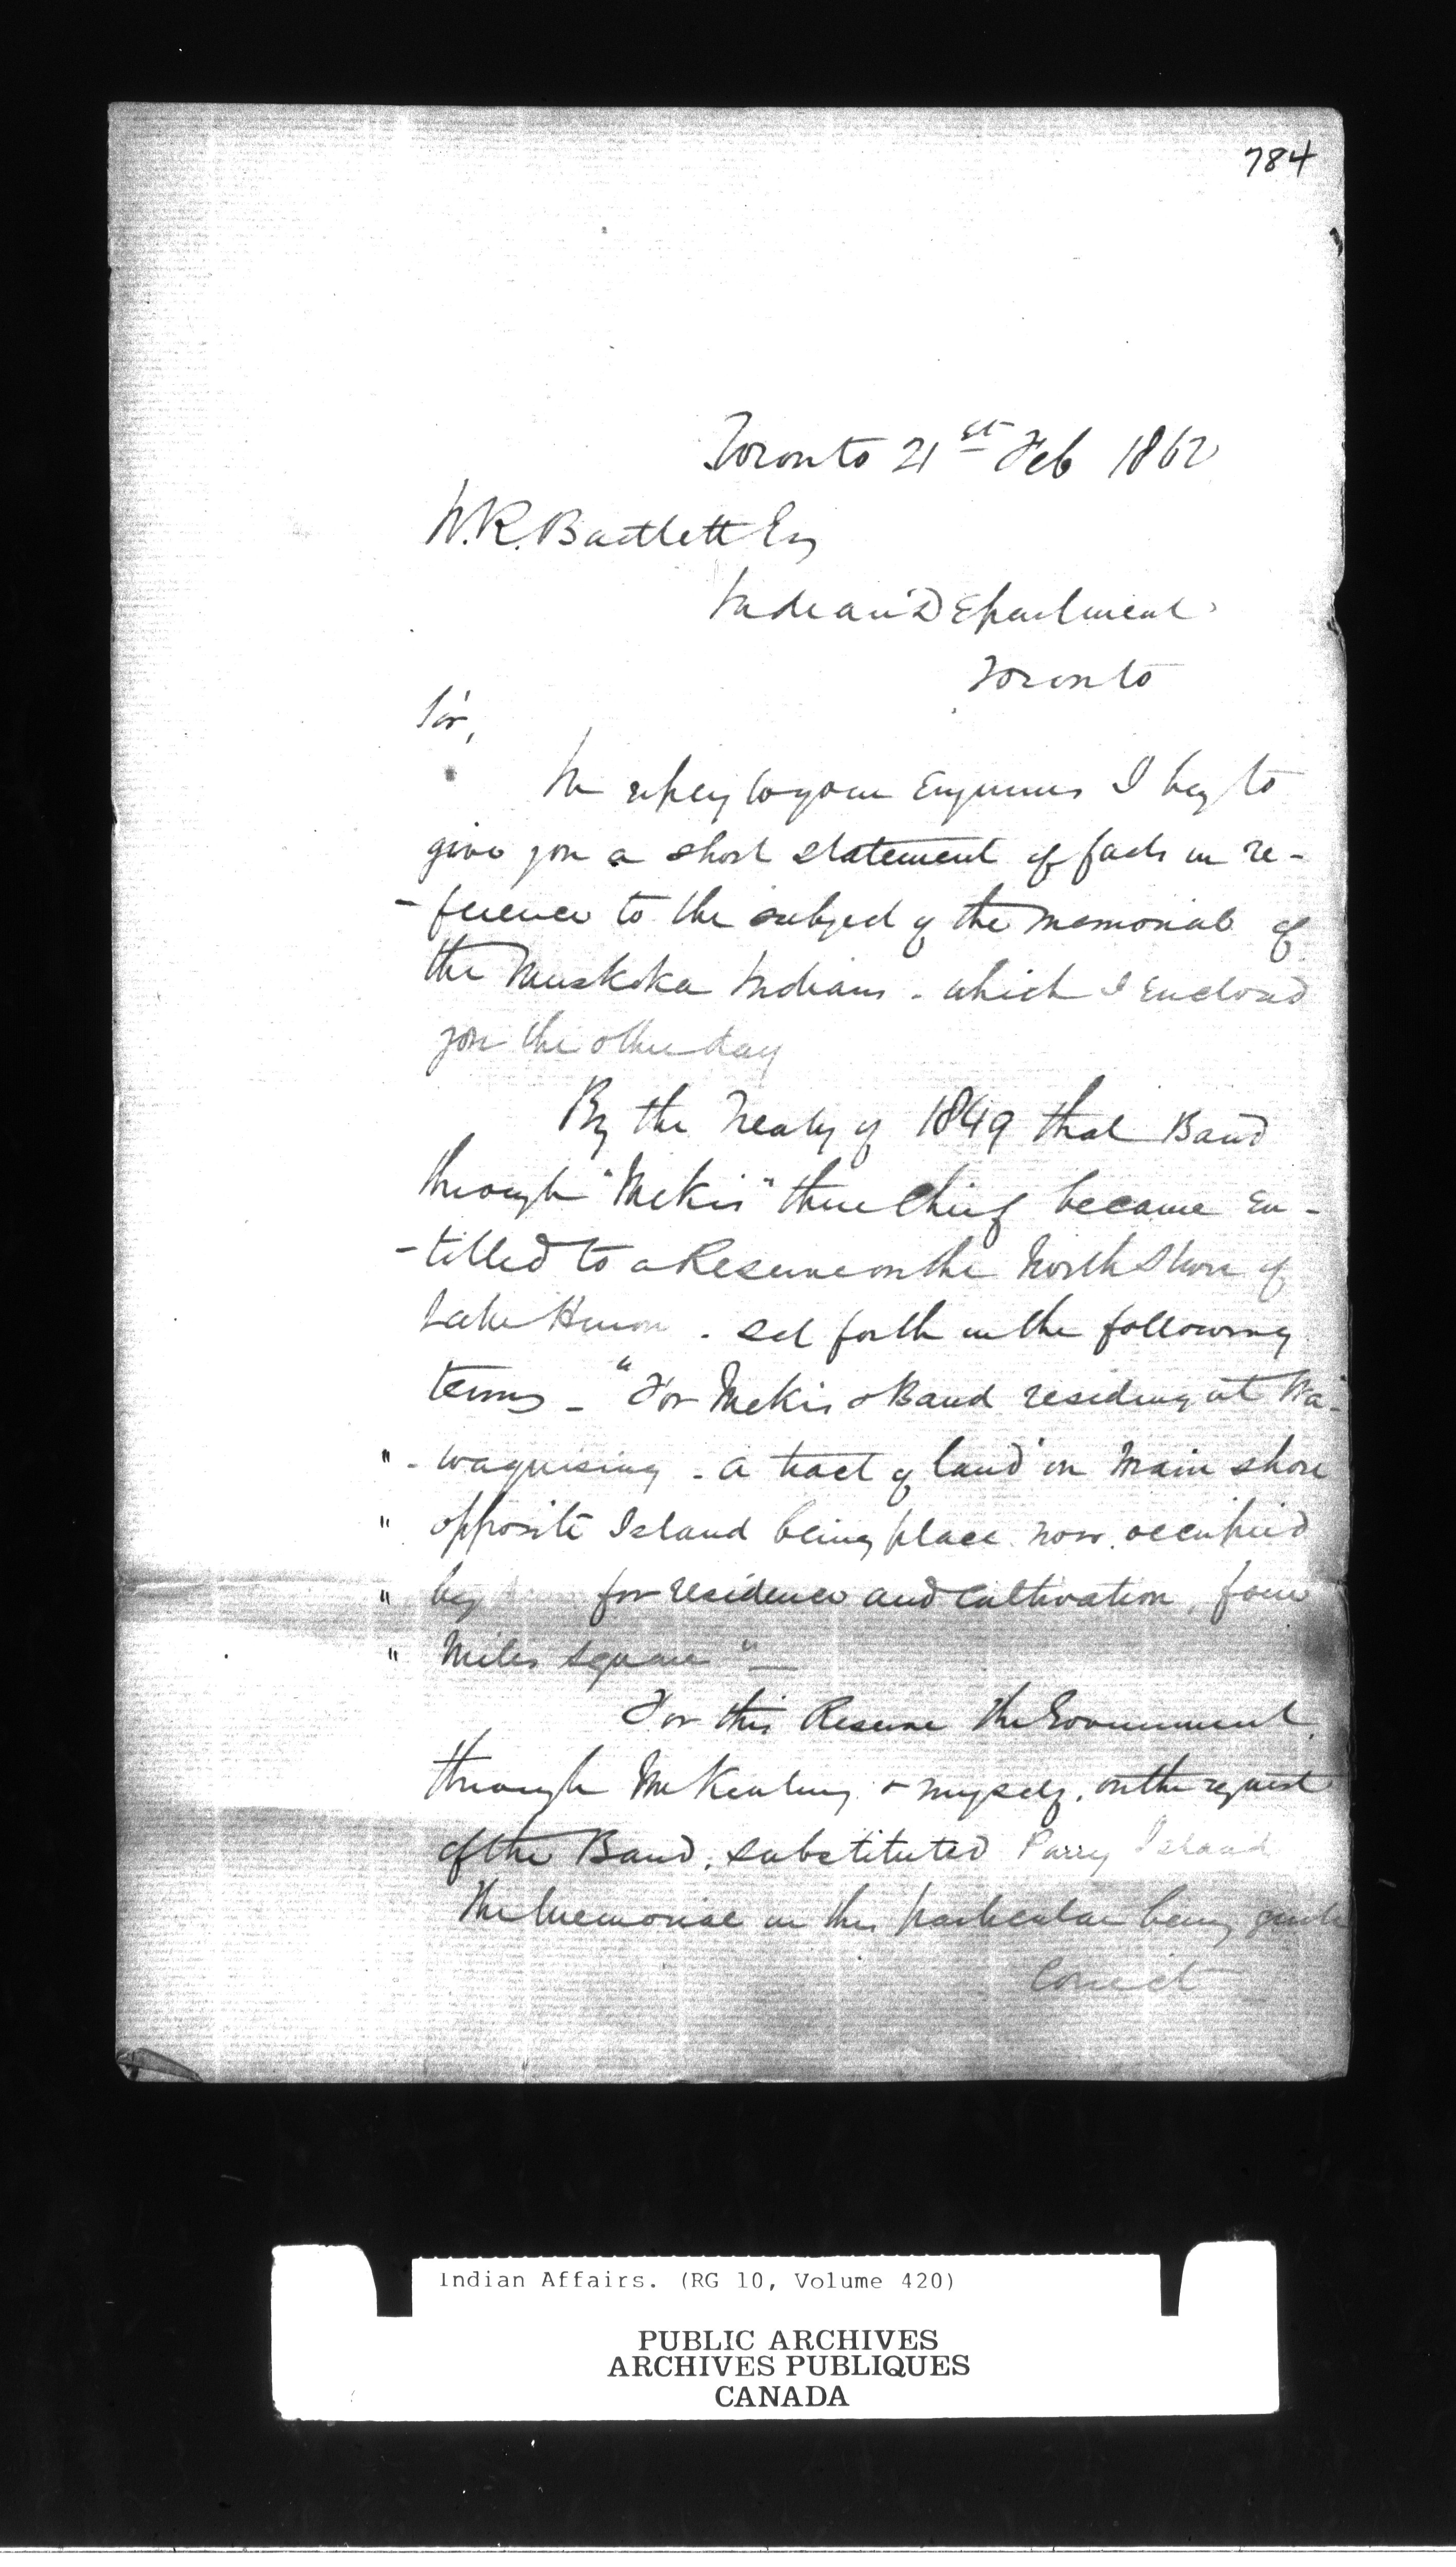 784
Toronto 21st Feb 1862
W.R. Bartlett Esq
Indian Department
Toronto
Sir,
In reply to your Enquiries I beg to
give you a short statement of facts in re-
-ference to the subject of the memorial of
the Muskoka Indians - which I Enclosed
you the other day
By the Treaty of 1849 that Band
through "Mekis" their Chief became en-
-titled to a Reserve on the North Shore of
Lake Huron - set forth in the following
terms - "For Mekis & Band residing at Wa-
" - waquising - a tract of land on Main shore
" opposite Island being place now occupied
" by for residence and cultivation, four
" Miles square" -
For this Reserve the Government,
through Mr Keating & myself, on the request
of the Band, substituted Parry Island
The Memorial in this particular being quite
Correct
Indian Affairs. (RG 10, Volume 420)
PUBLIC ARCHIVES
ARCHIVES PUBLIQUES
CANADA